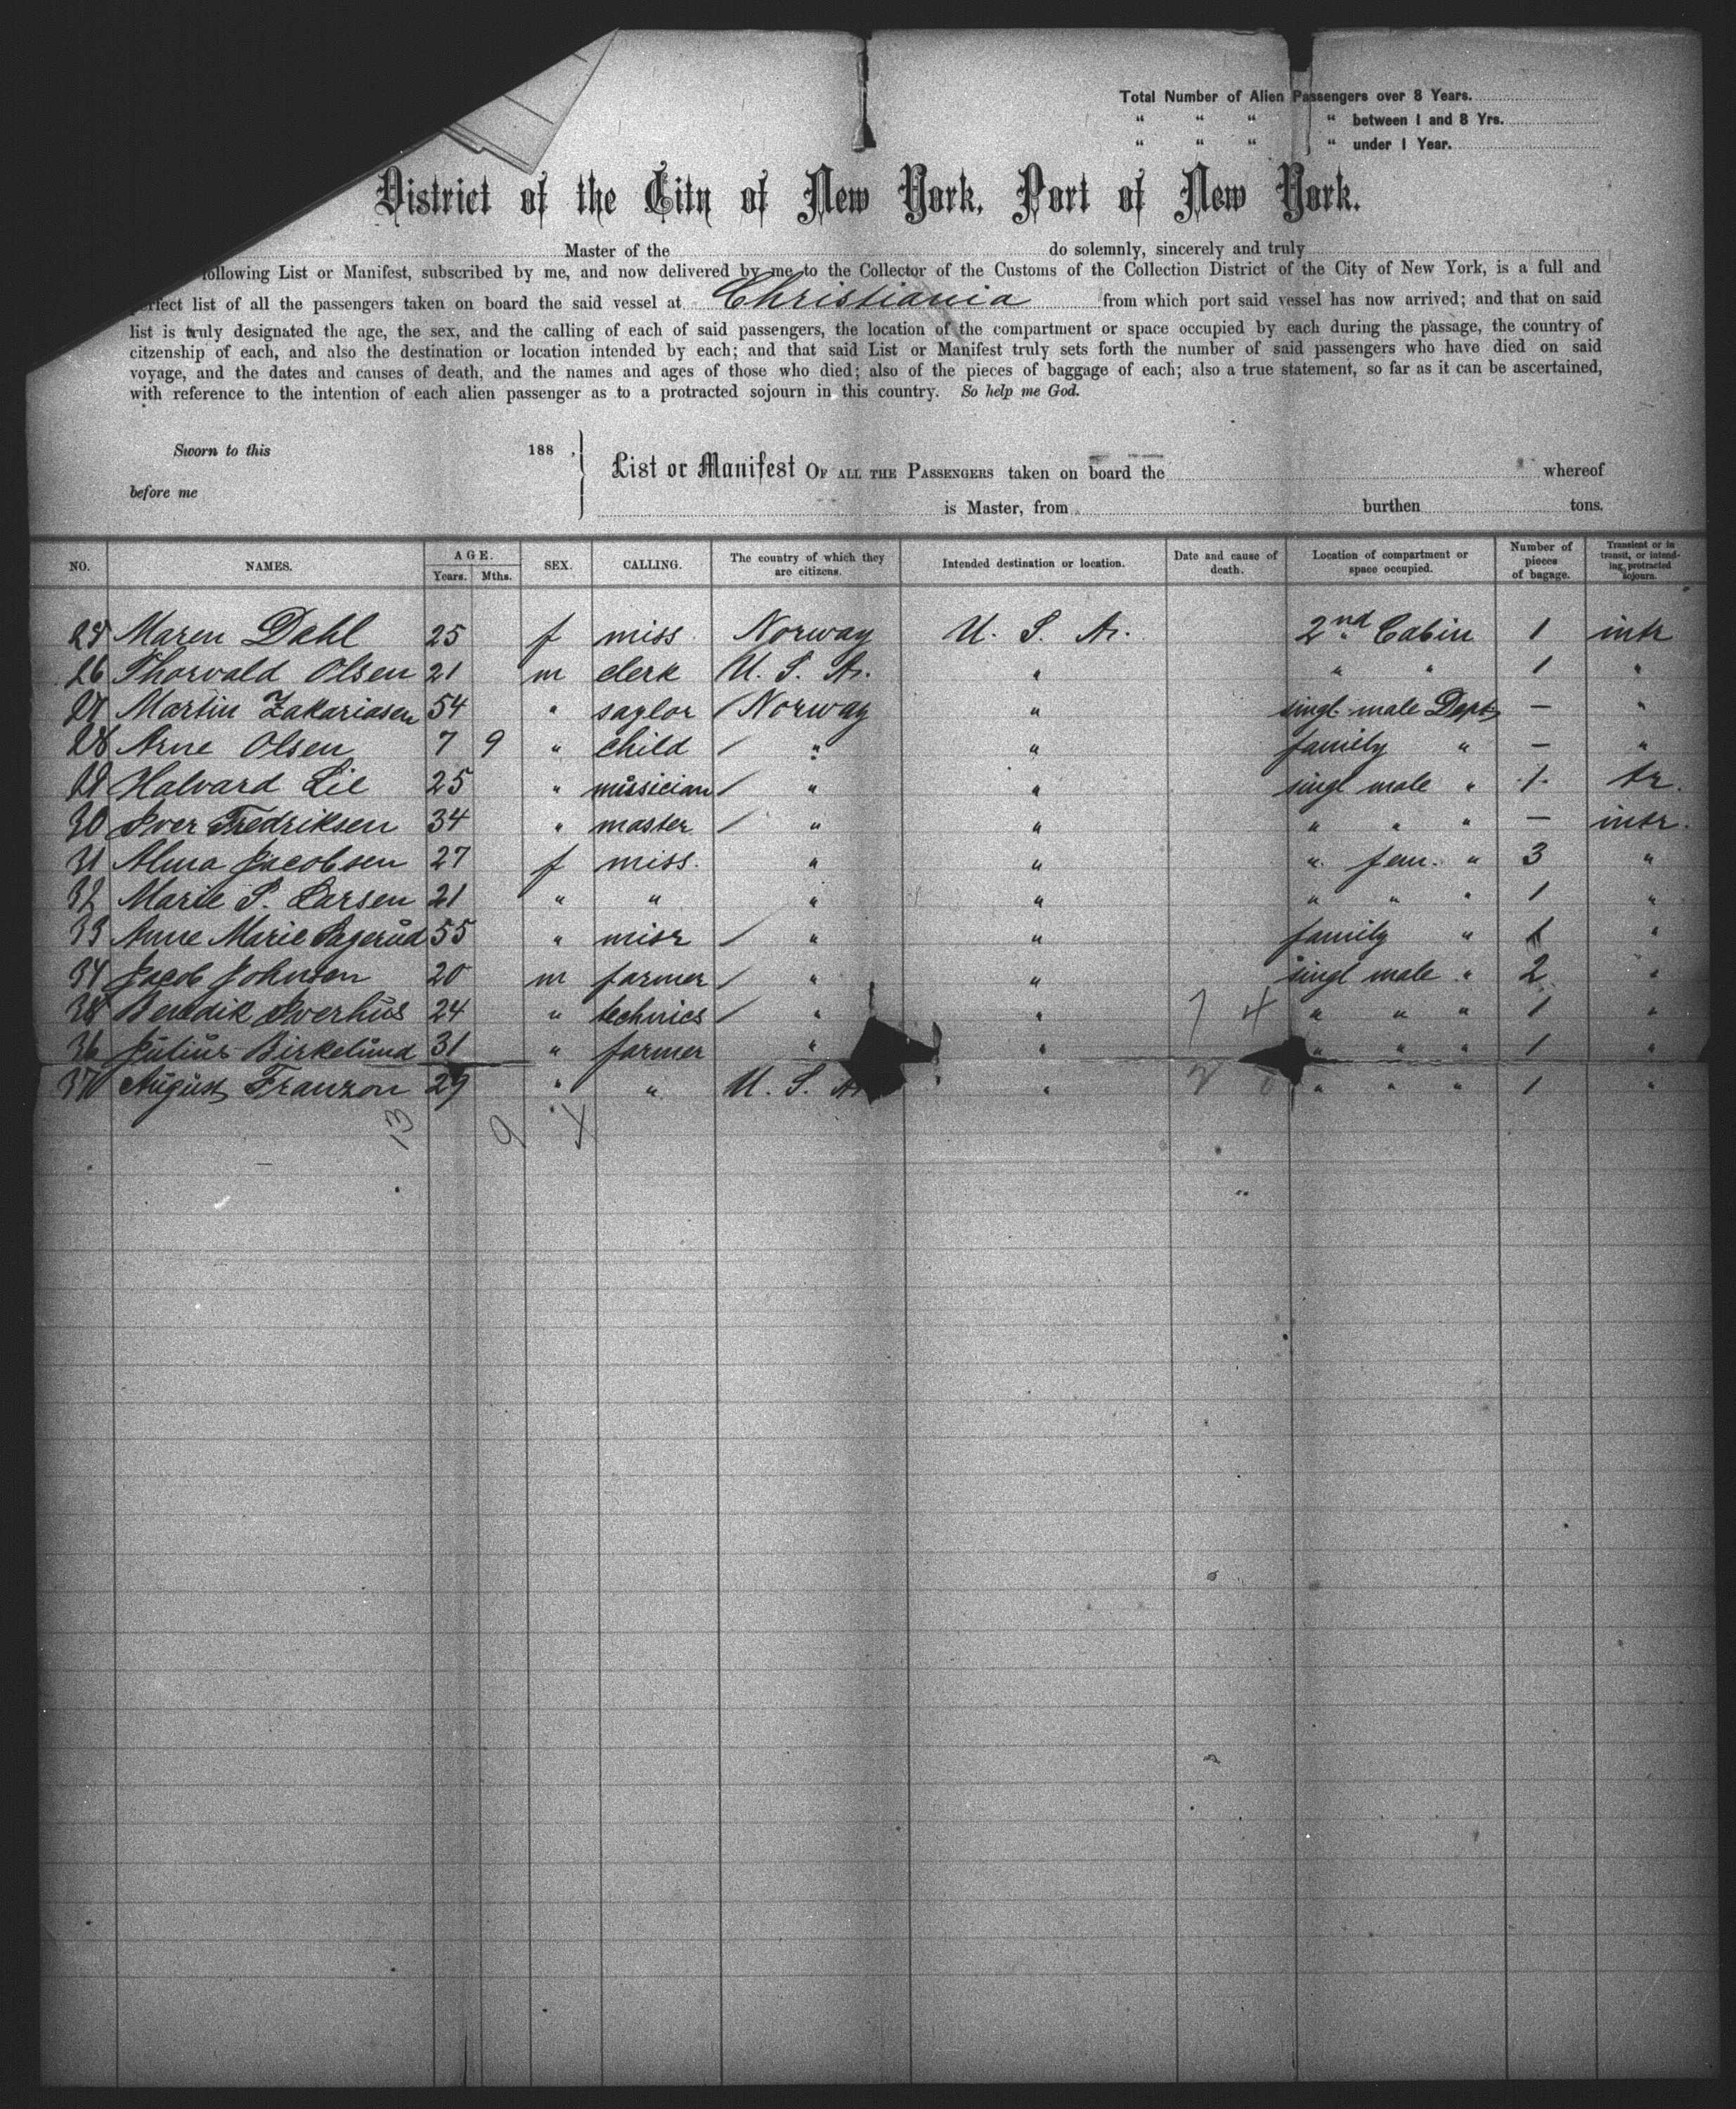 Total Number of Alien Passengers over 8 Years.
" " " " between 1 and 8 Yrs.
" " " " under 1 Year.
District of the City of New York, Port of New York.
Master of the do solemnly, sincerely and truly
following List or Manifest, subscribed by me, and now delivered by me to the Collector of the Customs of the Collection District of the City of New York, is a full and
perfect list of all the passengers taken on board the said vessel at Christiania from which port said vessel has now arrived; and that on said
list is truly designated the age, the sex, and the calling of each of said passengers, the location of the compartment or space occupied by each during the passage, the country of
citzenship of each, and also the destination or location intended by each; and that said List or Manifest truly sets forth the number of said passengers who have died on said
voyage, and the dates and causes of death, and the names and ages of those who died; also of the pieces of baggage of each; also a true statement, so far as it can be ascertained,
with reference to the intention of each alien passenger as to a protracted sojourn in this country. So help me God.
Sworn to this 188 ,
before me
List or Manifest OF ALL THE PASSENGERS taken on board the whereof
is Master, from burthen tons.
NO. NAMES. AGE. Years. Mths. SEX. CALLING. The country of which they are citizens. Intended destination or location. Date and cause of death. Location of compartment or space occupied. Number of pieces of bagage. Transient or in transit, or intending protracted sojourn.
25 Maren Dahl 25 f miss. Norway U. S. A. 2nd Cabin 1 intr
26 Thorvald Olsen 21 m clerk U. S. A. " " " 1 "
27 Martin Zakariasen 54 " saylor / Norway " singl. male Dept. — "
28 Arne Olsen 7 9 " child / " " family " — "
29 Halvard Lie 25 " musician / " " singl male " 1 tr.
30 Iver Fredriksen 34 " master / " " " " " — intr.
31 Alma Jacobsen 27 f miss. " " " fem. " 3 "
32 Marie P. Larsen 21 " " " " " " " 1 "
33 Anne Marie Sagerud 55 " misr / " " family " 1 "
34 Jacob Johnsen 20 m farmer / " " singl male " 2 "
35 Benedik Iverhus 24 " technics / " " 7 4 " " " 1 "
36 Julius Birkelund 31 " farmer " " " " " 1 "
37 August Franzon 29 " " U. S. A. " " " " 1 "
13 9 4